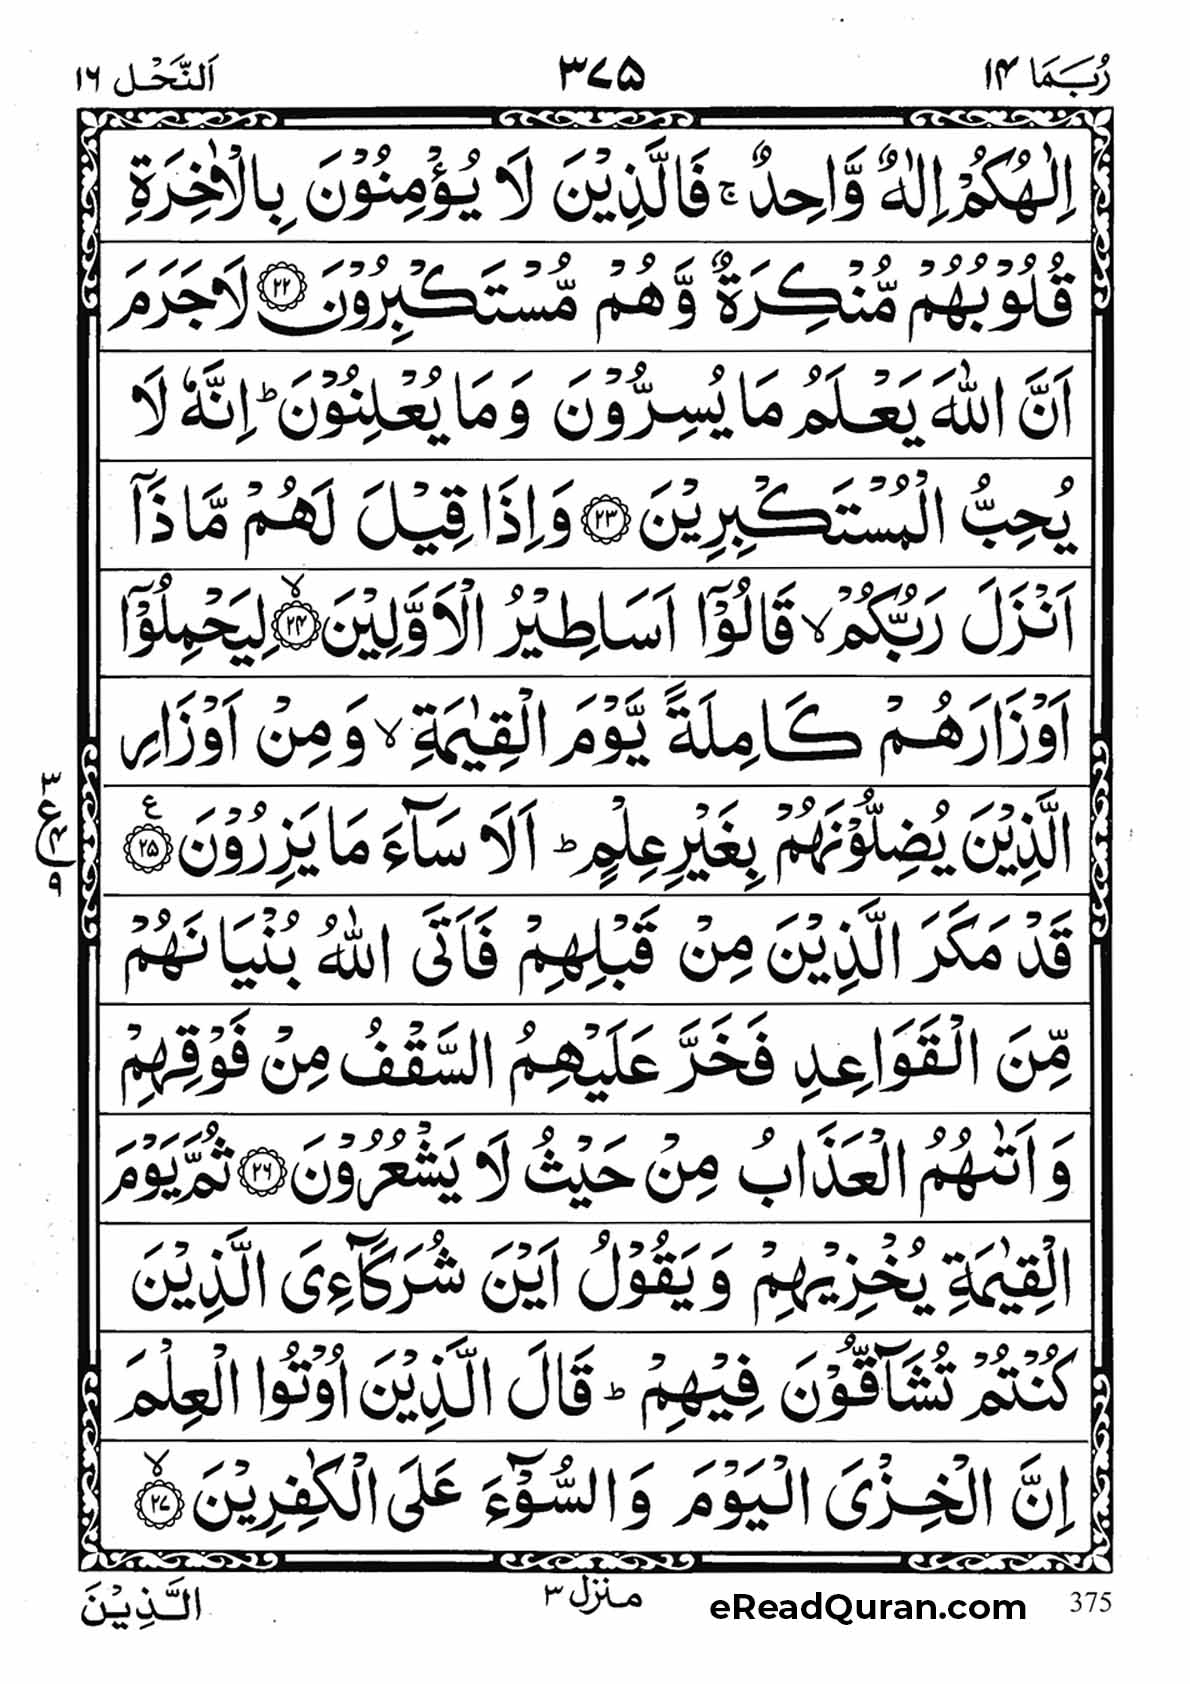 رُبَمَا ١٤
٣٧٥
اَلنَّحْل ١٦
اِلٰهُكُمْ اِلٰهٌ وَّاحِدٌ ۚ فَالَّذِيْنَ لَا يُؤْمِنُوْنَ بِالْاٰخِرَةِ
قُلُوْبُهُمْ مُّنْكِرَةٌ وَّهُمْ مُّسْتَكْبِرُوْنَ ٢٢ لَا جَرَمَ
اَنَّ اللّٰهَ يَعْلَمُ مَا يُسِرُّوْنَ وَمَا يُعْلِنُوْنَ ؕ اِنَّهٗ لَا
يُحِبُّ الْمُسْتَكْبِرِيْنَ ٢٣ وَاِذَا قِيْلَ لَهُمْ مَّاذَاۤ
اَنْزَلَ رَبُّكُمْ ۙ قَالُوْۤا اَسَاطِيْرُ الْاَوَّلِيْنَ ۙ ٢٤ لِيَحْمِلُوْۤا
اَوْزَارَهُمْ كَامِلَةً يَّوْمَ الْقِيٰمَةِ ۙ وَمِنْ اَوْزَارِ
الَّذِيْنَ يُضِلُّوْنَهُمْ بِغَيْرِ عِلْمٍ ؕ اَلَا سَآءَ مَا يَزِرُوْنَ ٢٥ ع
٣
ع ٤
٩
قَدْ مَكَرَ الَّذِيْنَ مِنْ قَبْلِهِمْ فَاَتَى اللّٰهُ بُنْيَانَهُمْ
مِّنَ الْقَوَاعِدِ فَخَرَّ عَلَيْهِمُ السَّقْفُ مِنْ فَوْقِهِمْ
وَاَتٰىهُمُ الْعَذَابُ مِنْ حَيْثُ لَا يَشْعُرُوْنَ ٢٦ ثُمَّ يَوْمَ
الْقِيٰمَةِ يُخْزِيْهِمْ وَيَقُوْلُ اَيْنَ شُرَكَآءِىَ الَّذِيْنَ
كُنْتُمْ تُشَآقُّوْنَ فِيْهِمْ ؕ قَالَ الَّذِيْنَ اُوْتُوا الْعِلْمَ
اِنَّ الْخِزْىَ الْيَوْمَ وَالسُّوْٓءَ عَلَى الْكٰفِرِيْنَ ۙ ٢٧
الَّذِيْنَ
منزل ٣
eReadQuran.com
375